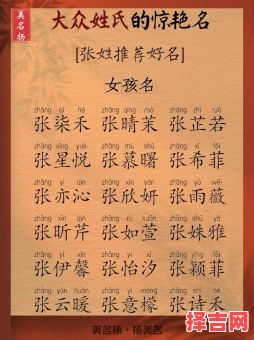 美名扬
大众姓氏的惊艳名
[张姓推荐好名]
女孩名
zhāng qī hé zhāng qíng mò zhāng zhǐ ruò
张柒禾 张晴茉 张芷若
zhāng xīng yuè zhāng mù shǔ zhāng xī fēi
张星悦 张慕曙 张希菲
zhāng yì qìn zhāng xīn yán zhāng yǔ wēi
张亦沁 张欣妍 张雨薇
zhāng xīn qín zhāng rú xuān zhāng shū yǎ
张昕芹 张如萱 张姝雅
zhāng yī xīn zhāng yí xī zhāng yǐng fēi
张伊馨 张怡汐 张颖菲
zhāng yún nuǎn zhāng yì méng zhāng shī hé
张云暖 张意檬 张诗禾
美名扬·扬美名
择吉网